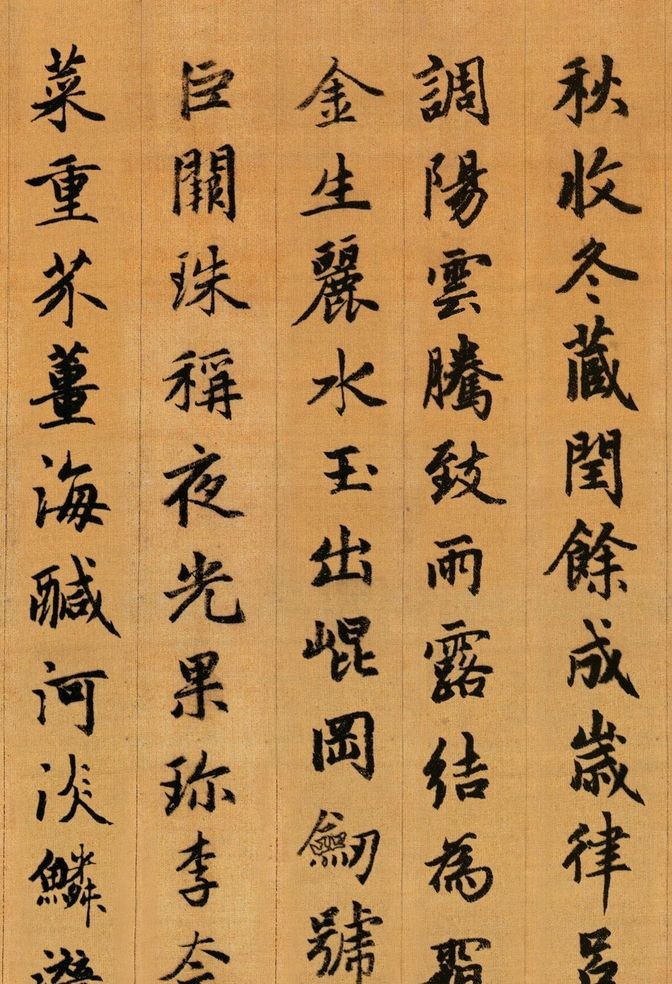 秋收冬藏閏餘成歲律呂
調陽雲騰致雨露結為霜
金生麗水玉出崐岡劒號
巨闕珠稱夜光果珎李奈
菜重芥薑海醎河淡鱗潛